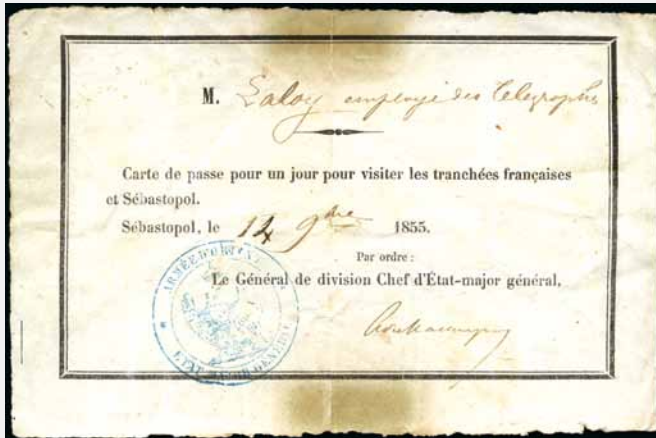 M. Laloy employé des Télégraphes
Carte de passe pour un jour pour visiter les tranchées françaises
et Sébastopol.
Sébastopol, le 14 9bre 1855.
Par ordre :
Le Général de division Chef d'État-major général,
ARMÉE D'ORIENT
ÉTAT MAJOR GÉNÉRAL